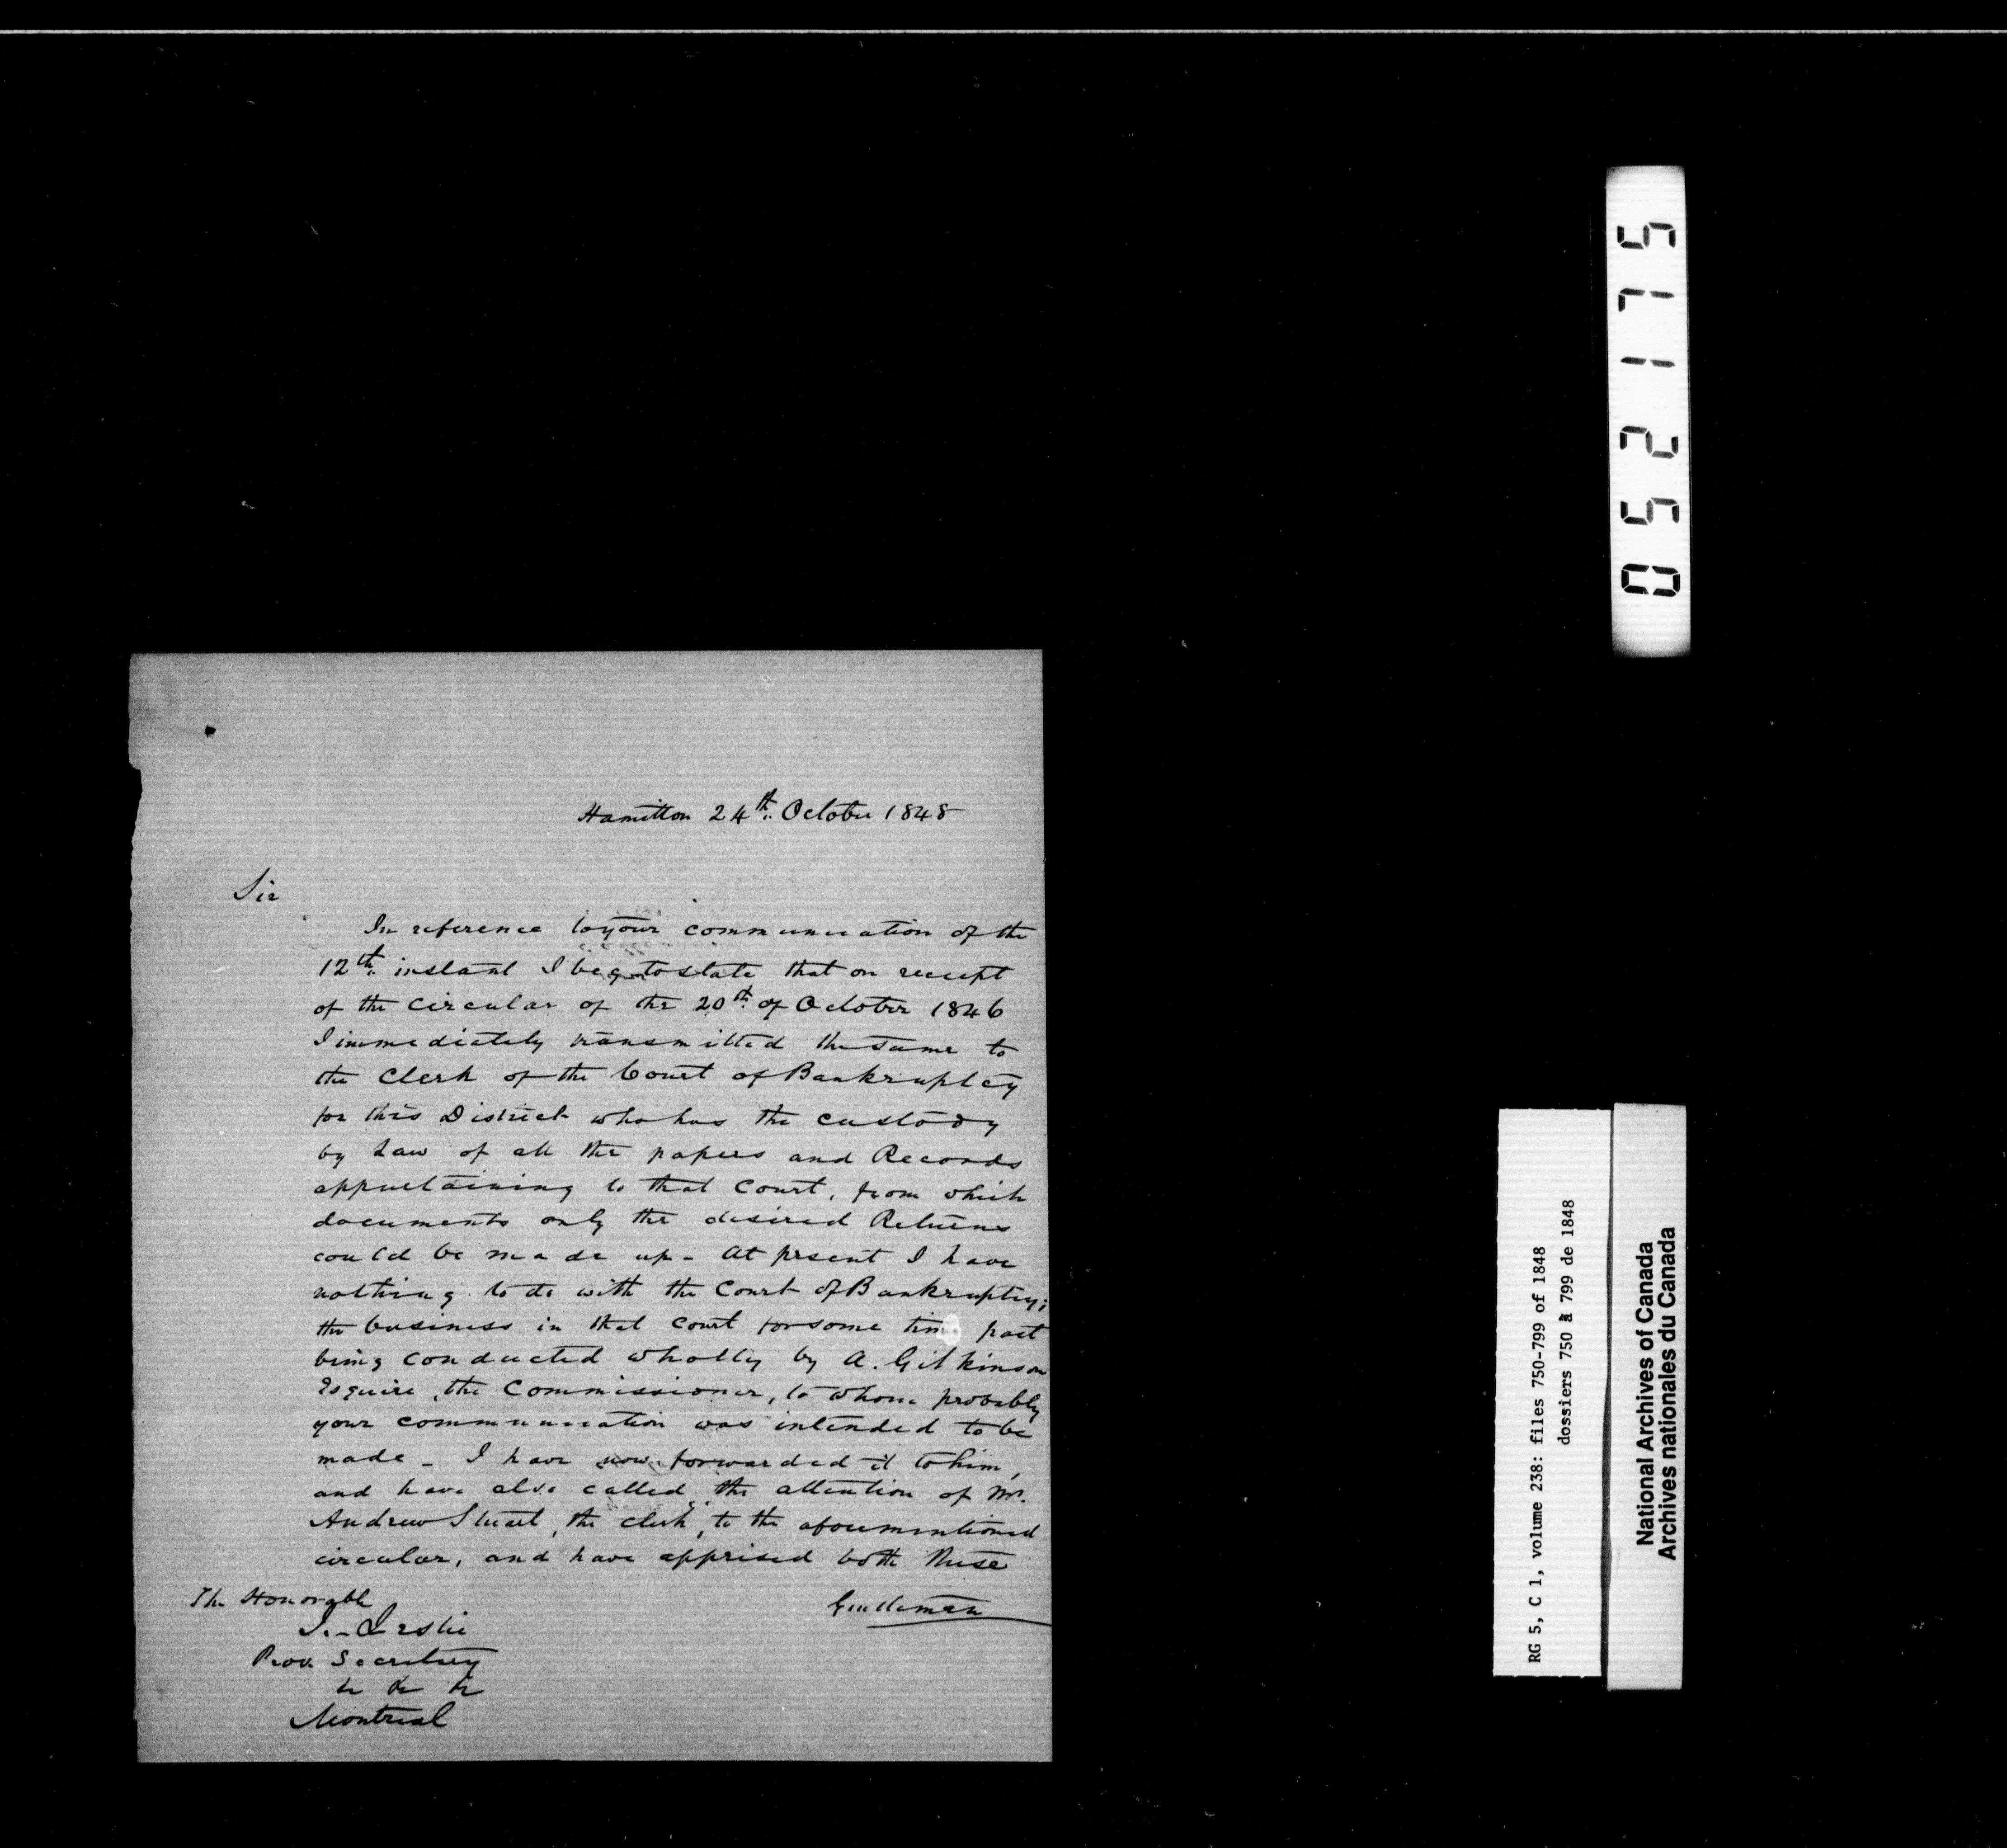 Hamilton 24th. October 1848
Sir
In reference to your communication of the
12th. instant I beg to state that on receipt
of the Circular of the 20th. of October 1846
I immediately transmitted the same to
the Clerk of the Court of Bankruptcy
for this District who has the custody
by Law of all the papers and Records
appertaining to that Court, from which
documents only the desired Returns
could be made up - At present I have
nothing to do with the Court of Bankruptcy;
the business in that Court for some time past
being conducted wholly by A. Gilkinson
Esquire, the Commissioner, to whom probably
your communication was intended to be
made - I have now forwarded it to him,
and have also called the attention of Mr.
Andrew Stuart, the Clerk, to the aforementioned
circular, and have apprised both these
Gentlemen
The Honorable
J. Leslie
Prov. Secretary
&c &c &c
Montreal
052175
RG 5, C 1, volume 238: files 750-799 of 1848
dossiers 750 à 799 de 1848
National Archives of Canada
Archives nationales du Canada